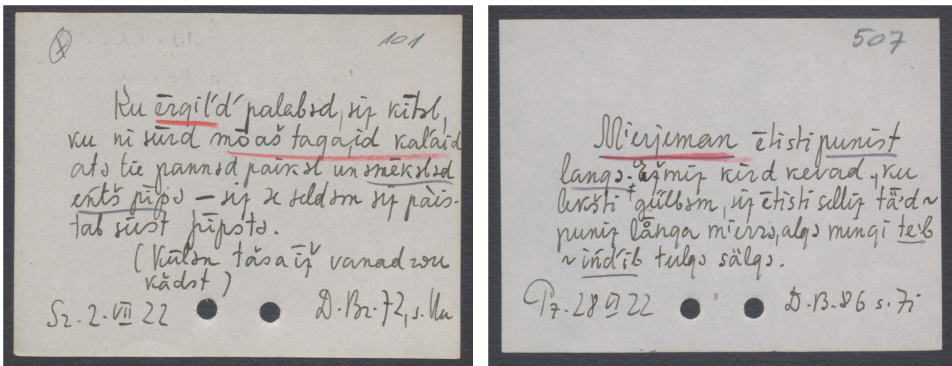 101
Ku ērgiľď palabəd, siɟ kītəb,
ku ni sūrd mōaš tagajid kalāid
ats tie pannəd päikəl un smēkəbəd
entš pīpə – siɟ se seldəm siɟ päis-
tab siest pīpstə.
vanad
kādst)
Sz. 2. VII 22
D. Bz. 72,
507
Mierjeman ētisti punist
langə.
kurd kevad, ku
lekšti gūlbəm, siɟ ētistiselliɟ tād ~
puniɟ lānga mierrə, algə mingi teb
~ indib tulgə sälgə.
Pz. 28 VI 22
D. B. 86 s. 7i